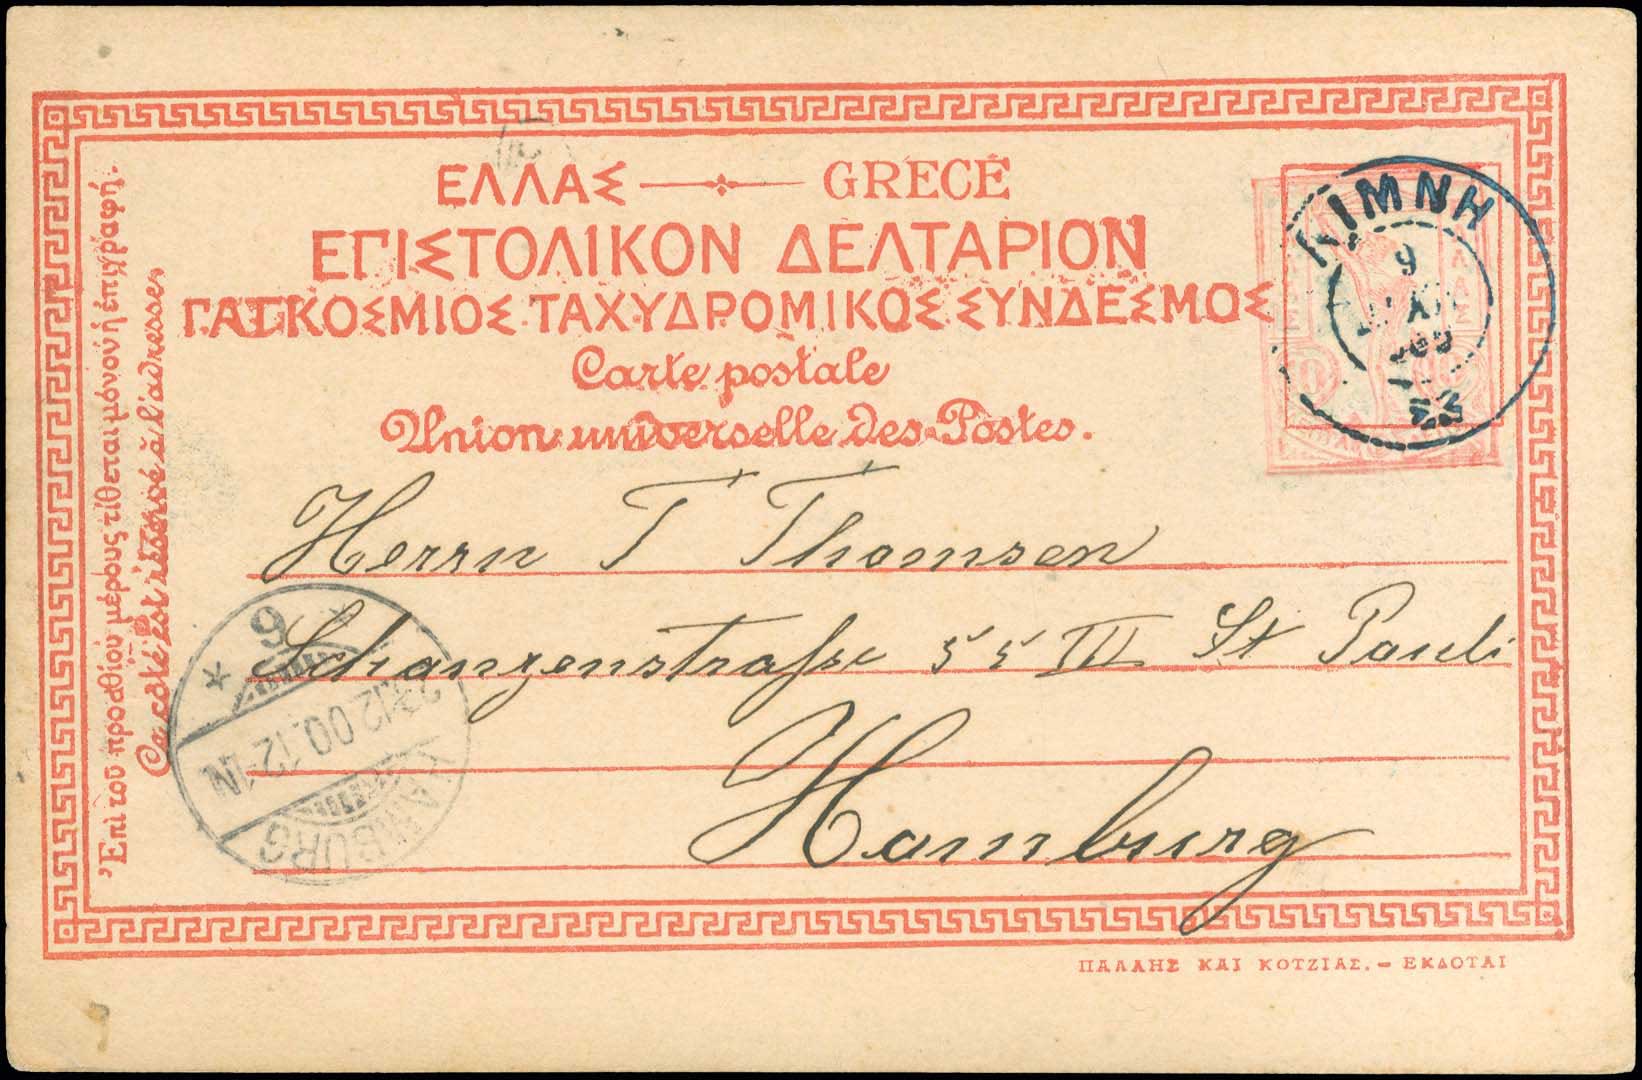 ΕΛΛΑΣ — GRECE
ΕΠΙΣΤΟΛΙΚΟΝ ΔΕΛΤΑΡΙΟΝ
ΠΑΓΚΟΣΜΙΟΣ ΤΑΧΥΔΡΟΜΙΚΟΣ ΣΥΝΔΕΣΜΟΣ
Carte postale
Union universelle des Postes.
Ἐπὶ τοῦ προσθίου μέρους τίθεται μόνον ἡ ἐπιγραφή.
Ce coté est réservé à l'adresse
ΛΙΜΝΗ
9
Herrn T Thomsen
Schanzenstraße 55 III St Pauli
Hamburg
* 6 *
23.12.00.12-1N
HAMBURG
ΠΑΛΛΗΣ ΚΑΙ ΚΟΤΖΙΑΣ. – ΕΚΔΟΤΑΙ